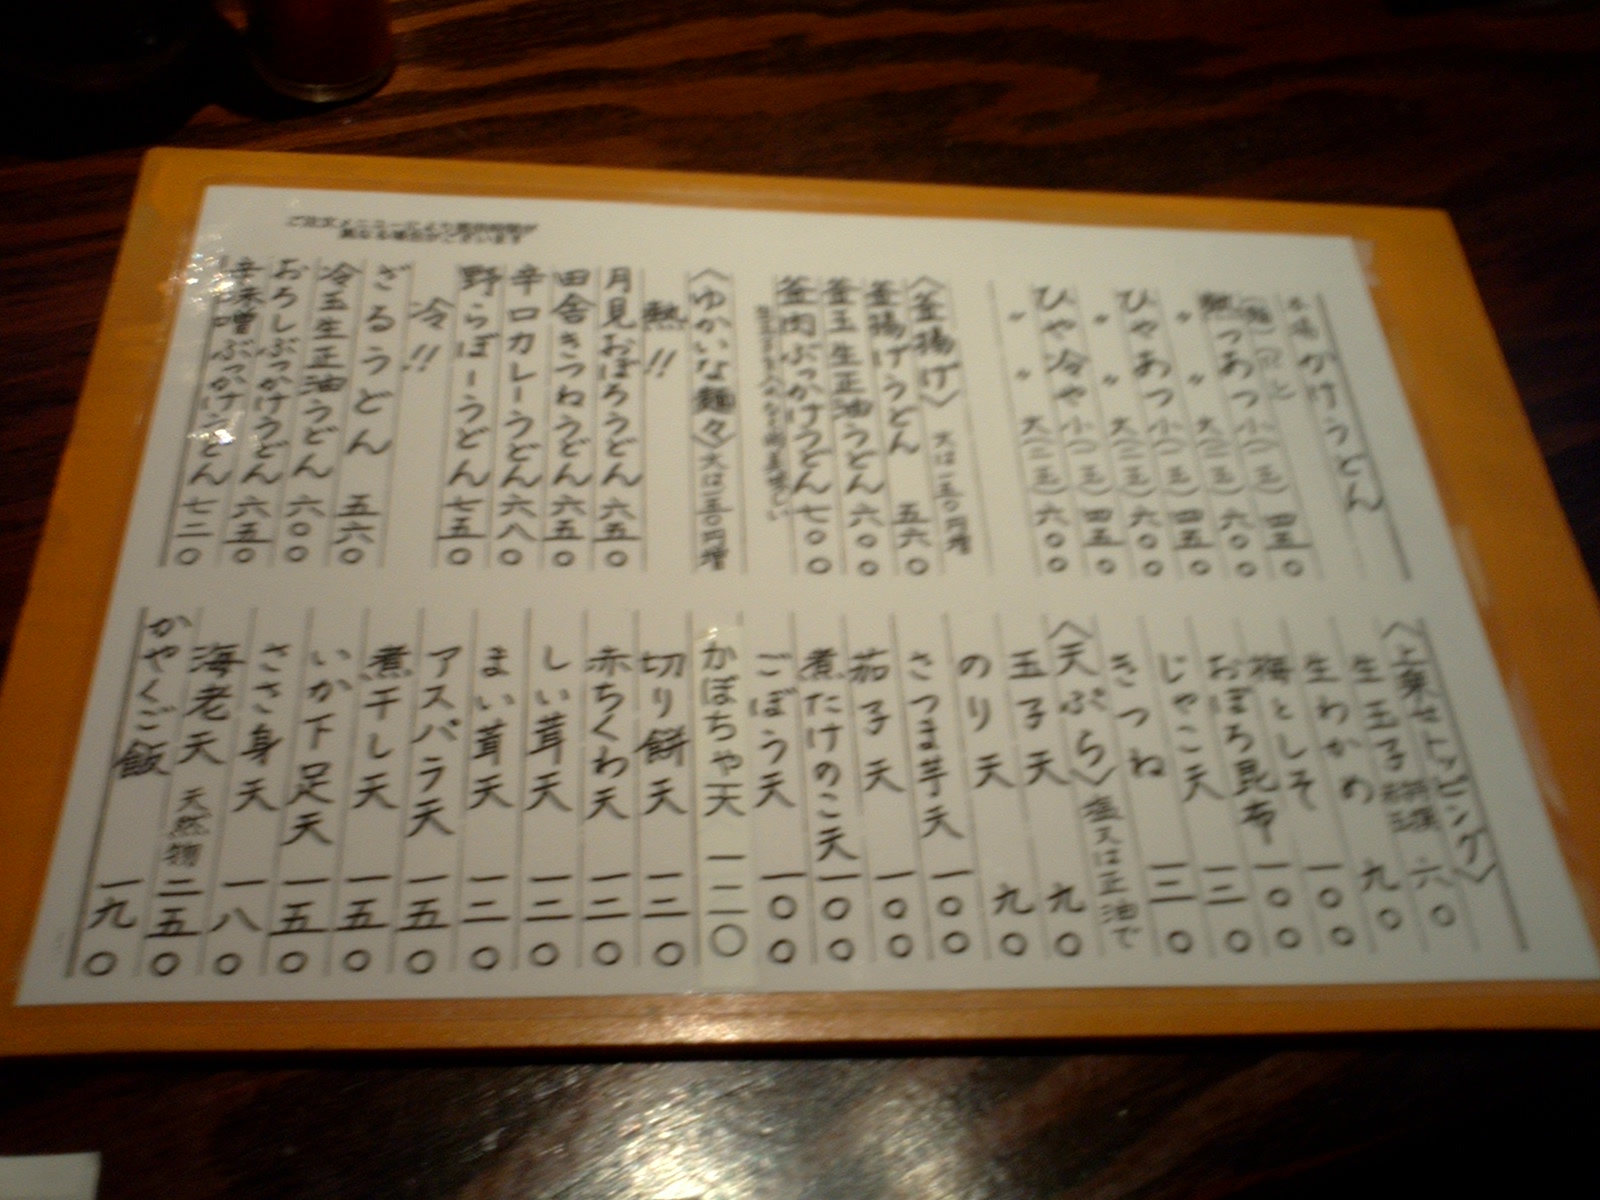 ご注文メニューにより提供時間が
異なる場合がございます
本場 かけうどん
(麺) (つゆ)
熱つあつ 小(一玉) 四五〇
〃 〃 大(二玉) 六〇〇
ひやあつ 小(一玉) 四五〇
〃 〃 大(二玉) 六〇〇
ひや冷や 小(一玉) 四五〇
〃 〃 大(二玉) 六〇〇
〈釜揚げ〉 大は一五〇円増
釜揚げうどん 五六〇
釜玉生正油うどん 六〇〇
釜肉ぶっかけうどん 七〇〇
〈ゆかいな麺々〉大は一五〇円増
熱!!
月見おぼろうどん 六五〇
田舎きつねうどん 六五〇
辛口カレーうどん 六八〇
野らぼーうどん 七五〇
冷!!
ざるうどん 五六〇
冷玉生正油うどん 六〇〇
おろしぶっかけうどん 六五〇
辛味噌ぶっかけうどん 七二〇
〈上乗せトッピング〉
生玉子 六〇
生わかめ 九〇
梅としそ 一〇〇
おぼろ昆布 一〇〇
じゃこ天 一三〇
きつね 一三〇
〈天ぷら〉塩又は正油で
玉子天 九〇
のり天 九〇
さつま芋天 一〇〇
茄子天 一〇〇
煮たけのこ天 一〇〇
ごぼう天 一〇〇
かぼちゃ天 一二〇
切り餅天 一二〇
赤ちくわ天 一二〇
しい茸天 一二〇
まい茸天 一二〇
アスパラ天 一五〇
煮干し天 一五〇
いか下足天 一五〇
ささ身天 一八〇
海老天 天然物 二五〇
かやくご飯 一九〇